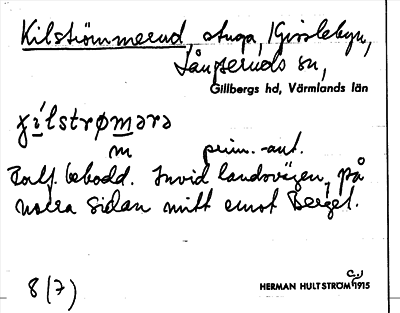 Kilströmmerud, stuga, Gisslebyn,
Långseruds sn,
Gillbergs hd, Värmlands län
m prim.-ant.
bebodd. Invid landsvägen, på
norra sidan mitt emot Berget.
8 (7)
HERMAN HULTSTRÖM 1915